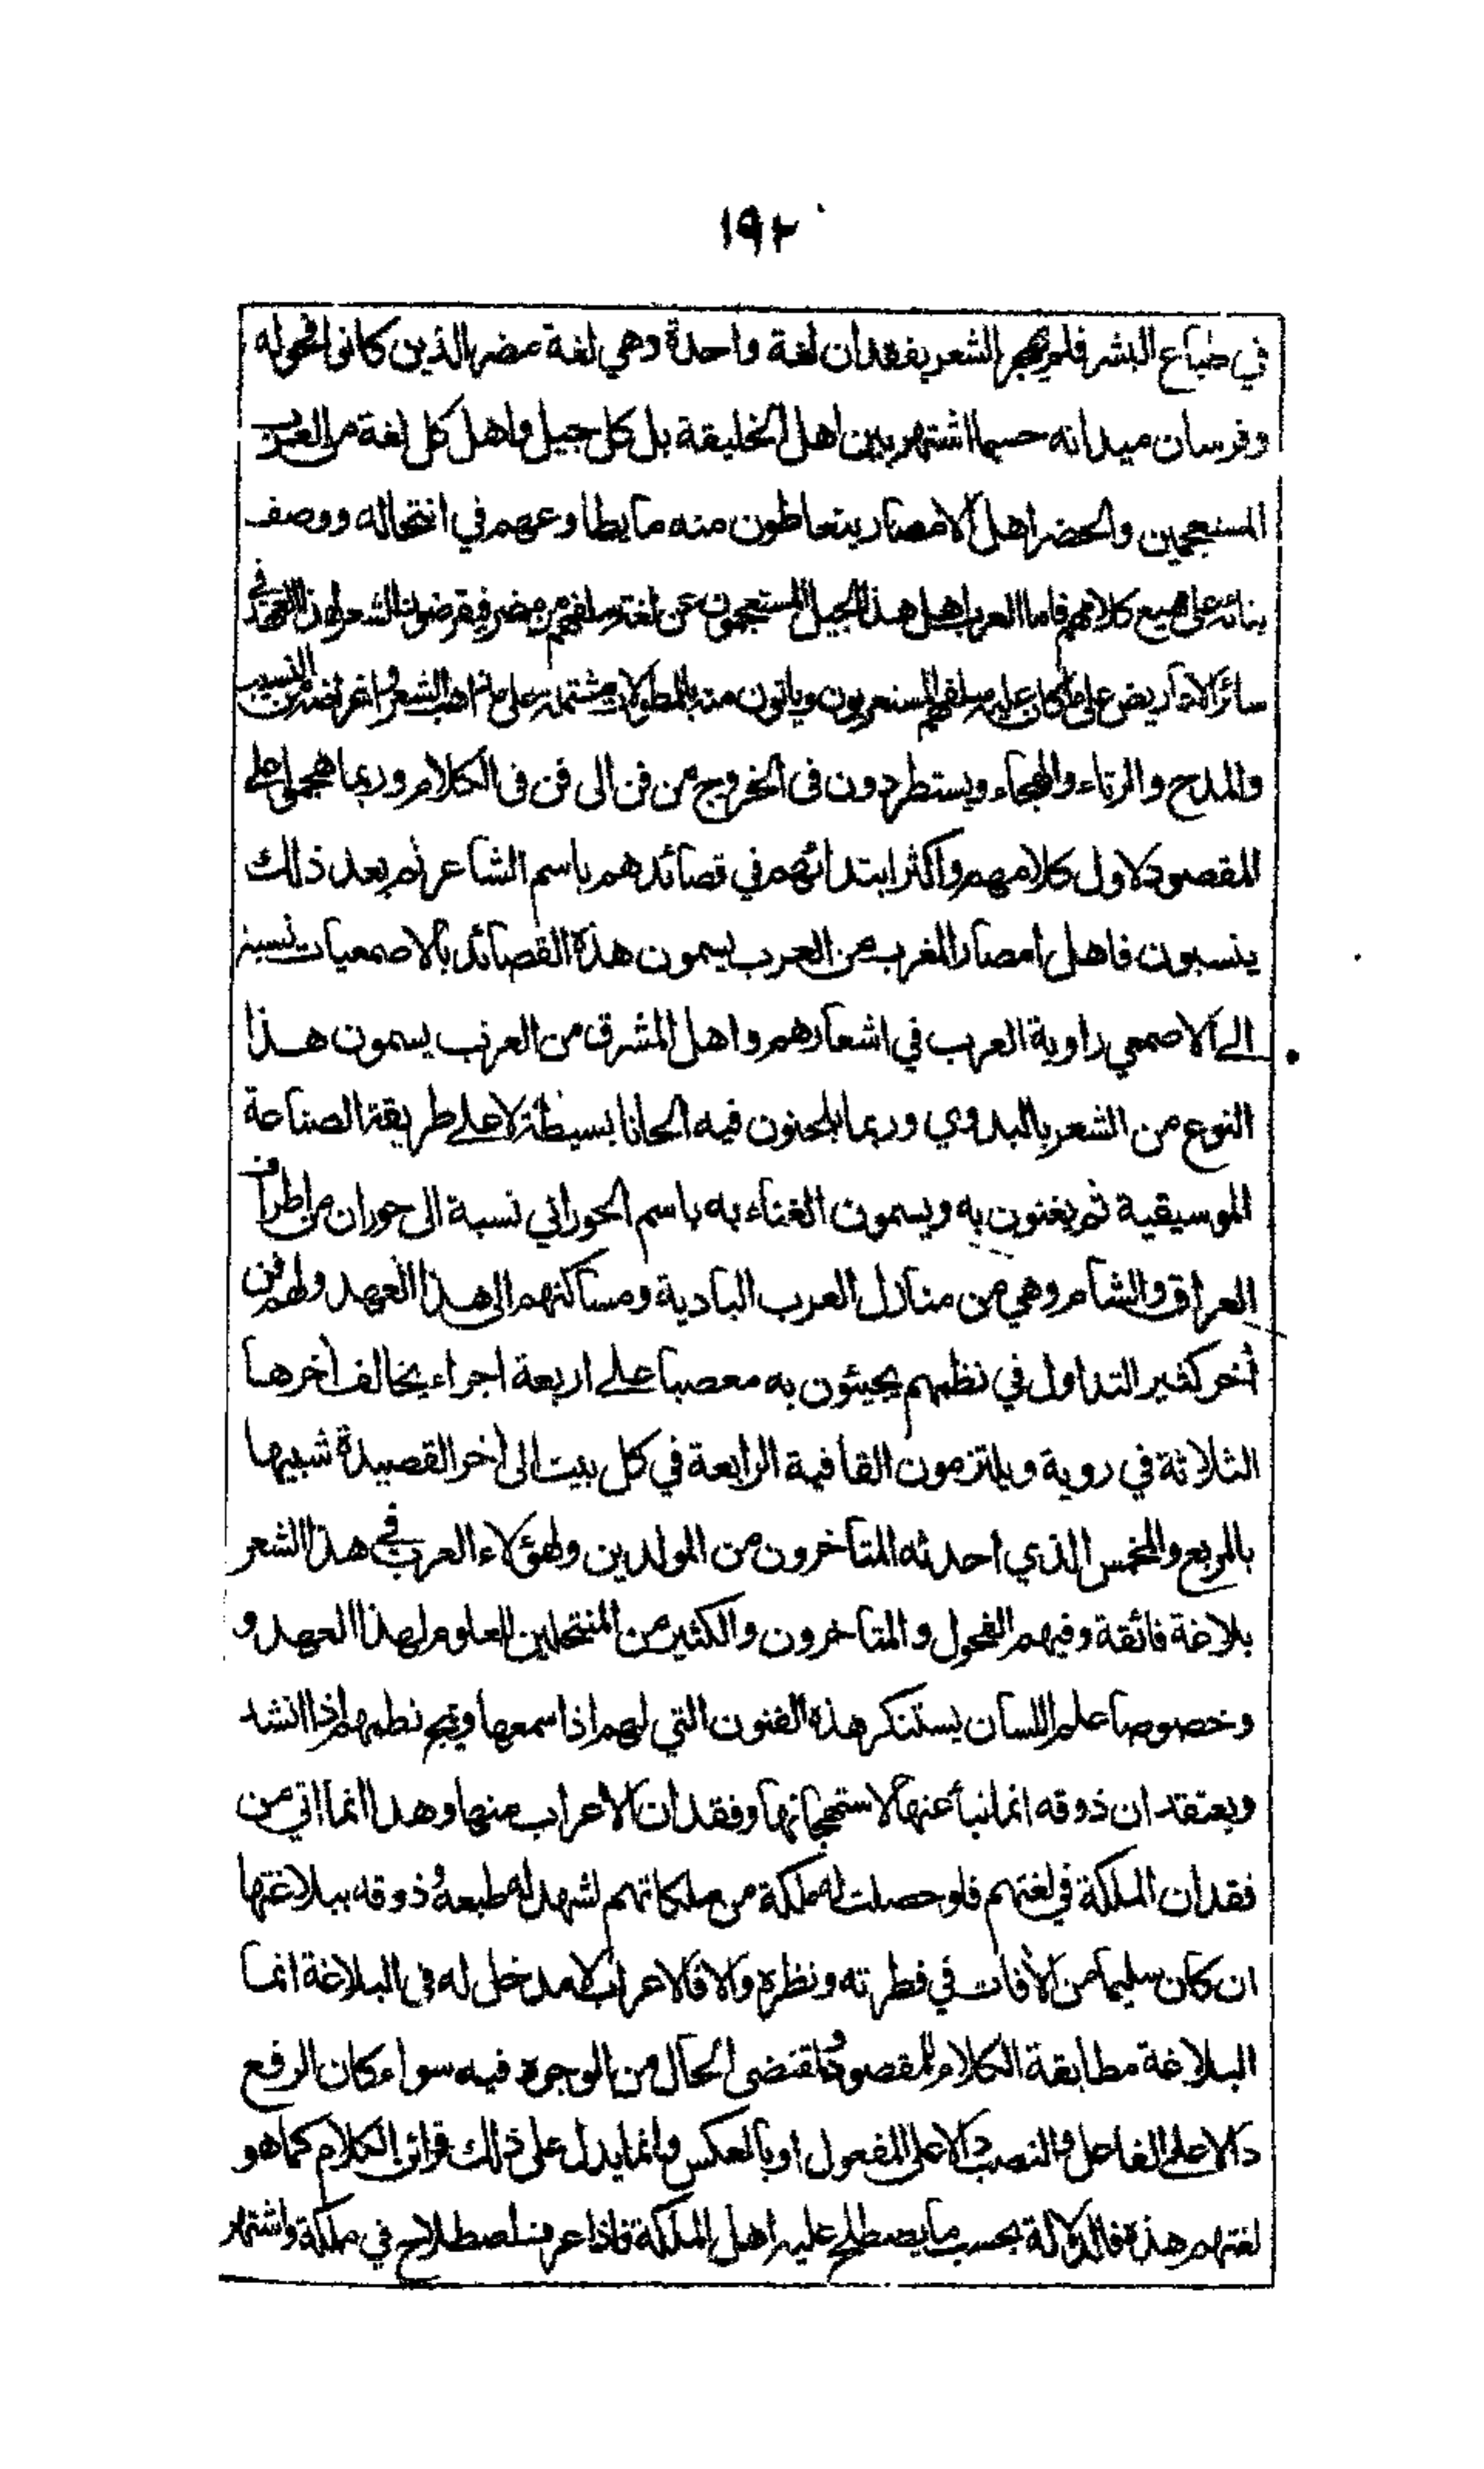 ١٩٢
في طباع البشر فلم يهجر الشعر بفقدان لغة واحدة وهي لغة مضر الذين كانوا فحوله
وفرسان ميدانه حسبما اشتهر بين اهل الخليقة بل كل جيل واهل كل لغة من العرب
المستعجمين والحضر اهل الامصار يتعاطون منه ما يطاوعهم في انتحاله ووصف
بنائه على مهيع كلامهم فاما العرب اهل هذا الجيل المستعجمون عن لغة سلفهم من مضر فيقرضون الشعر لهذا العهد في
سائر الاعاريض على ما كان عليه سلفهم المستعربون وياتون منه بالمطولات مشتملة على مذاهب الشعر واغراضه من النسيب
والمدح والرثاء والهجاء ويستطردون فى الخروج من فن الى فن فى الكلام وربما هجموا على
المقصود لاول كلامهم واكثر ابتدائهم في قصائدهم باسم الشاعر ثم بعد ذلك
ينسبون فاهل امصار المغرب من العرب يسمون هذه القصائد بالاصمعيات نسبة
الى الاصمعي راوية العرب في اشعارهم واهل المشرق من العرب يسمون هذا
النوع من الشعر بالبدوي وربما يلحنون فيه الحانا بسيطة لا على طريقة الصناعة
الموسيقية ثم يغنون به ويسمون الغناء به باسم الحوراني نسبة الى حوران من اطراف
العراق والشام وهي من منازل العرب البادية ومساكنهم الى هذا العهد ولهم فن
أخر كثير التداول في نظمهم يجيئون به معصبا على اربعة اجراء يخالف أخرها
الثلاثة في روية ويلتزمون القافية الرابعة في كل بيت الى أخر القصيدة شبيها
بالمربع والمخمس الذي احدثه المتأخرون من المولدين ولهؤلاء العرب في هذا الشعر
بلاغة فائقة وفيهم الفحول والمتاخرون والكثير من المنتحلين للعلوم لهذا العهد و
وخصوصا علم اللسان يستنكر هذه الفنون التي لهم اذا سمعها ويمج نظمهم اذا انشد
ويعتقد ان ذوقه انما نبأ عنها لاستهجانها وفقدان الاعراب منها وهذا انما اتي من
فقدان الملكة في لغتهم فلو حصلت له ملكة من ملكاتهم لشهد له طبعه وذوقه ببلاغتها
ان كان سليما من الأفات في فطرته ونظره والا فالاعراب لا مدخل له فى البلاغة انما
البلاغة مطابقة الكلام للمقصود ولمقتضى الحال من الوجوه فيه سواء كان الرفع
دالا على الفاعل والنصب دالا على المفعول او بالعكس وانما يدل على ذلك قرائن الكلام كما هو
لغتهم هذه فالدلالة بحسب ما يصطلح عليه اهل الملكة فاذا عرف اصطلاح في ملكة واشتهار